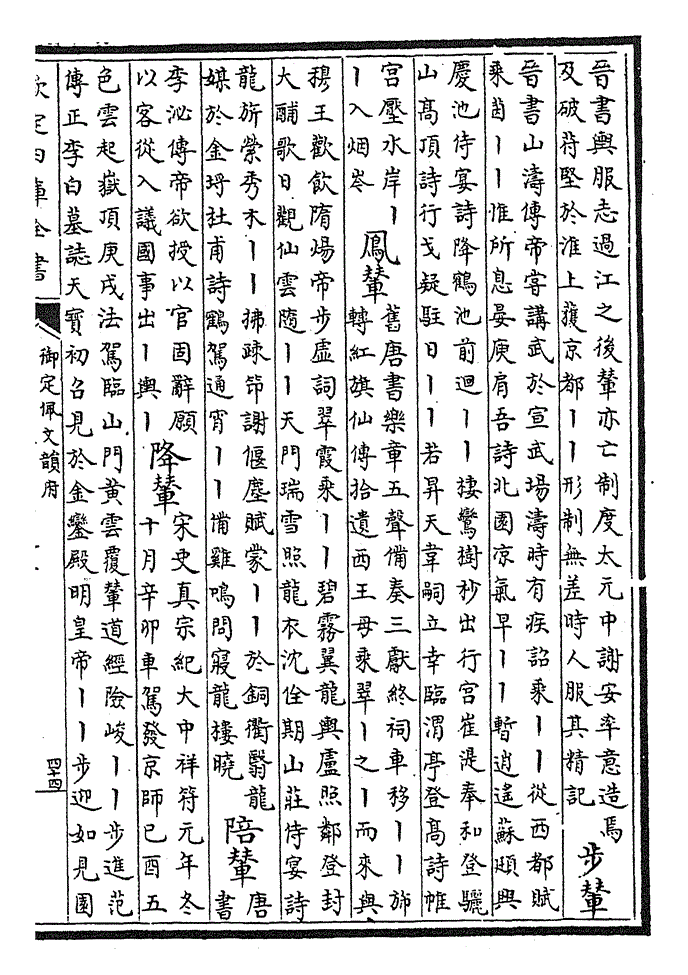 晉書輿服志過江之後輦亦亡制度太元中謝安率意造焉
及破苻堅於淮上獲京都丨丨形制無差時人服其精記
步輦
晉書山濤傳帝嘗講武於宣武場濤時有疾詔乘丨丨從西都賦
乘茵丨丨惟所息晏庾肩吾詩北園涼氣早丨丨暫逍遙蘇頲興
慶池侍宴詩降鶴池前迴丨丨棲鸞樹杪出行宮崔湜奉和登驪
山高頂詩行戈疑駐日丨丨若昇天韋嗣立幸臨渭亭登高詩帷
宮壓水岸丨
丨入烟岑
鳳輦
舊唐書樂章五聲備奏三獻終祠車移丨丨旆
轉紅旗仙傳拾遺西王母乘翠丨之丨而來與
穆王歡飲隋煬帝步虛詞翠霞乘丨丨碧霧翼龍輿盧照鄰登封
大酺歌日觀仙雲隨丨丨天門瑞雪照龍衣沈佺期山莊侍宴詩
龍旂縈秀木丨丨拂疎筇謝偃塵賦蒙丨丨於銅衢翳龍
媒於金埒杜甫詩鶴駕通宵丨丨備雞鳴問寢龍樓曉
陪輦
唐
書
李泌傳帝欲授以官固辭願
以客從入議國事出丨輿丨
降輦
宋史真宗紀大中祥符元年冬
十月辛卯車駕發京師已酉五
色雲起嶽頂庚戌法駕臨山門黃雲覆輦道經險峻丨丨步進范
傳正李白墓誌天寶初召見於金鑾殿明皇帝丨丨步迎如見園
欽定四庫全書
御定佩文韻府
四十四